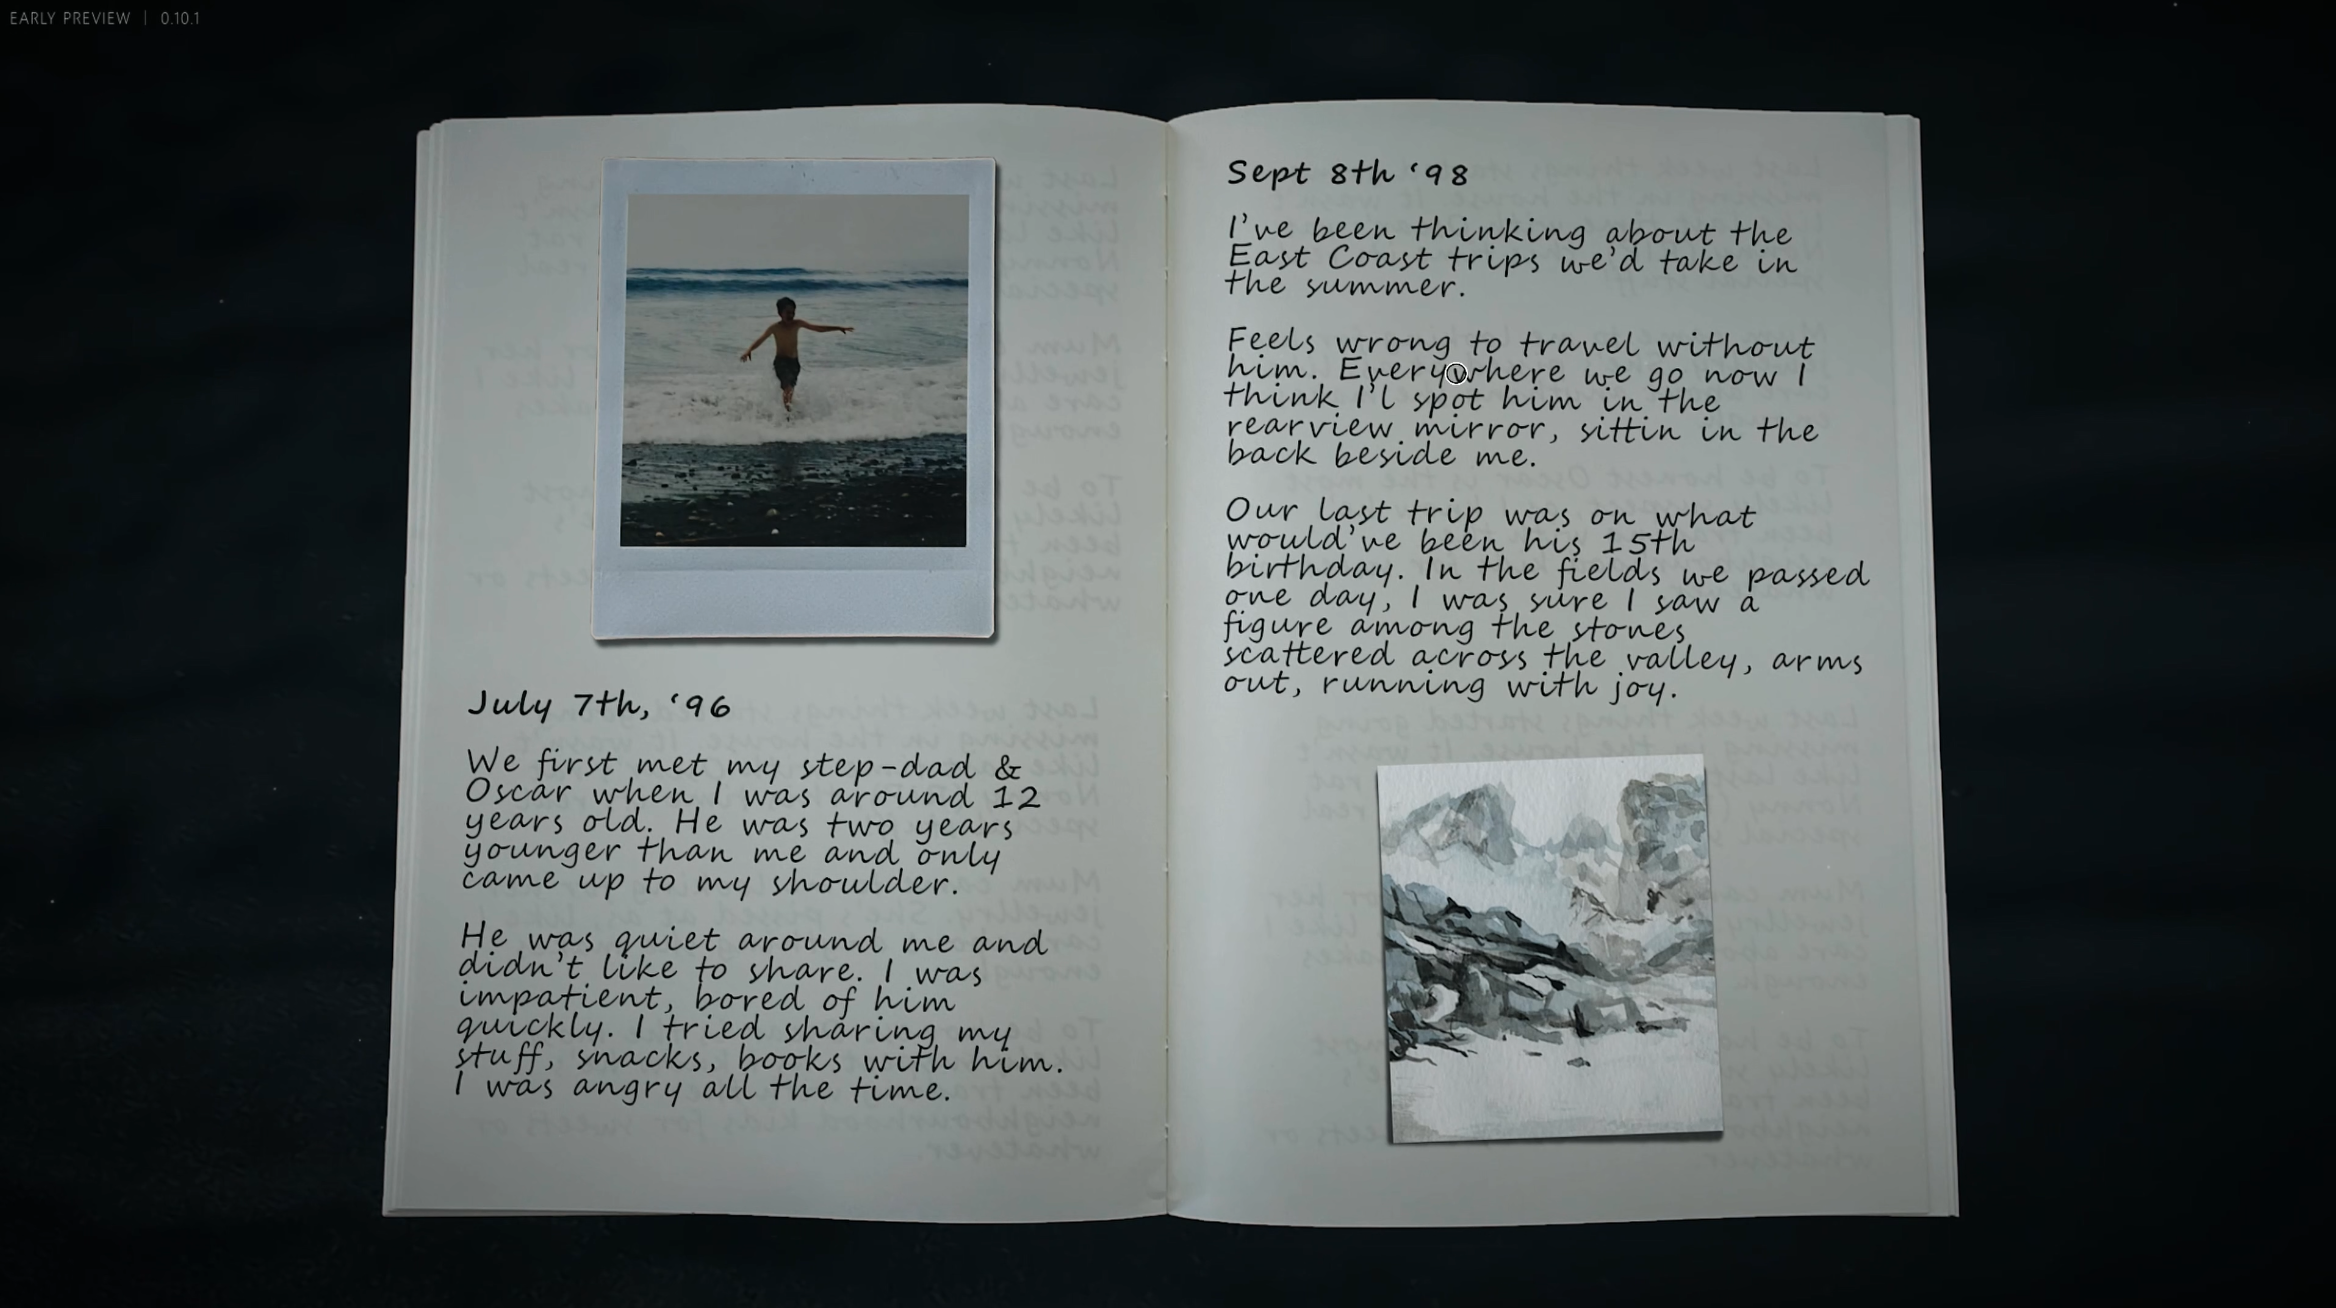 EARLY PREVIEW | 0.10.1
July 7th, ‘96
We first met my step-dad &
Oscar when I was around 12
years old. He was two years
younger than me and only
came up to my shoulder.
He was quiet around me and
didn’t like to share. I was
impatient, bored of him
quickly. I tried sharing my
stuff, snacks, books with him.
I was angry all the time.
Sept 8th ‘98
I’ve been thinking about the
East Coast trips we’d take in
the summer.
Feels wrong to travel without
him. Everywhere we go now I
think I’l spot him in the
rearview mirror, sittin in the
back beside me.
Our last trip was on what
would’ve been his 15th
birthday. In the fields we passed
one day, I was sure I saw a
figure among the stones
scattered across the valley, arms
out, running with joy.